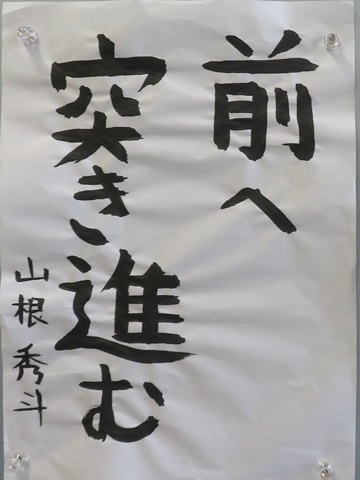 前へ
突き進む
山根秀斗